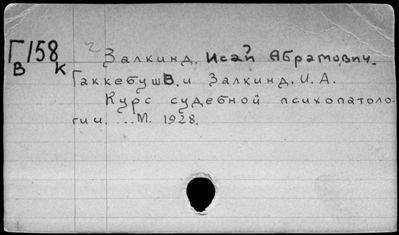 Г/158 2 Залкинд, Исай Абрамович.
В к
Гаккебуш В. и Залкинд, И. А.
Курс судебной психопатоло-
гии. ... М. 1928.